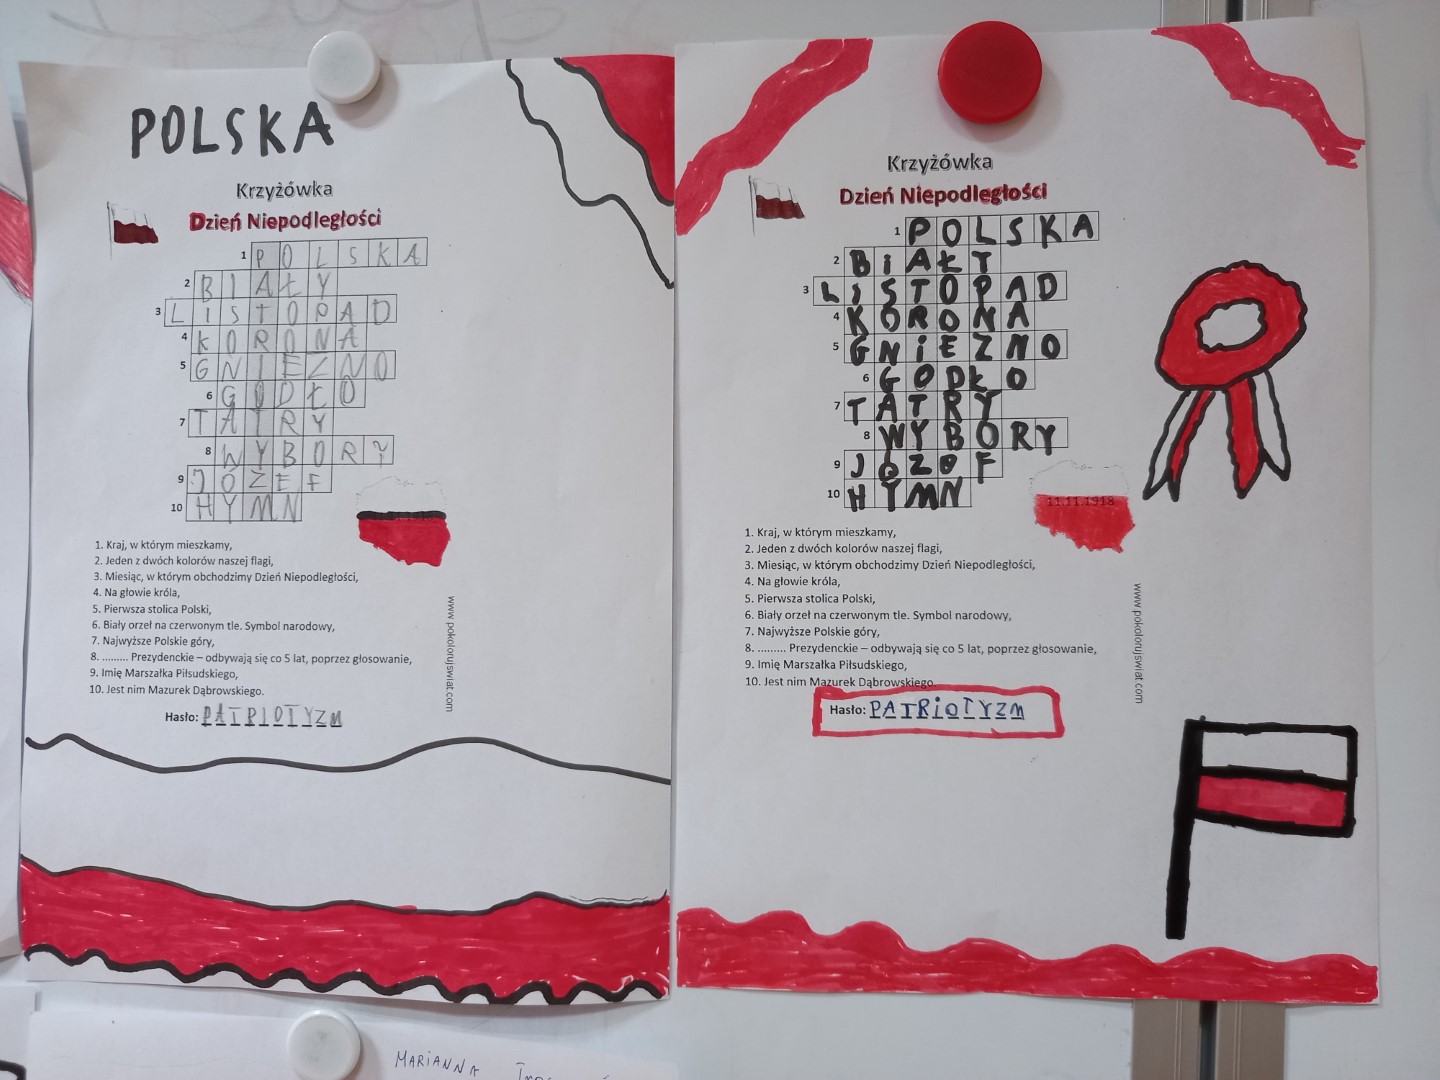 POLSKA
Krzyżówka
Dzień Niepodległości
1 POLSKA
2 BIAŁY
3 LISTOPAD
4 KORONA
5 GNIEZNO
6 GODŁO
7 TATRY
8 WYBORY
9 JÓZEF
10 HYMN
1. Kraj, w którym mieszkamy,
2. Jeden z dwóch kolorów naszej flagi,
3. Miesiąc, w którym obchodzimy Dzień Niepodległości,
4. Na głowie króla,
5. Pierwsza stolica Polski,
6. Biały orzeł na czerwonym tle. Symbol narodowy,
7. Najwyższe Polskie góry,
8. ......... Prezydenckie – odbywają się co 5 lat, poprzez głosowanie,
9. Imię Marszałka Piłsudskiego,
10. Jest nim Mazurek Dąbrowskiego.
Hasło: PATRIOTYZM
www.pokolorujswiat.com
Krzyżówka
Dzień Niepodległości
1 POLSKA
2 BiAŁY
3 LiSTOPAD
4 KORONA
5 GNiEZNO
6 GODŁO
7 TATRY
8 WYBORY
9 JÓZOF
10 HYMN
11.11.1918
1. Kraj, w którym mieszkamy,
2. Jeden z dwóch kolorów naszej flagi,
3. Miesiąc, w którym obchodzimy Dzień Niepodległości,
4. Na głowie króla,
5. Pierwsza stolica Polski,
6. Biały orzeł na czerwonym tle. Symbol narodowy,
7. Najwyższe Polskie góry,
8. ......... Prezydenckie – odbywają się co 5 lat, poprzez głosowanie,
9. Imię Marszałka Piłsudskiego,
10. Jest nim Mazurek Dąbrowskiego.
Hasło: PATRiOTYZM
www.pokolorujswiat.com
MARIANNA